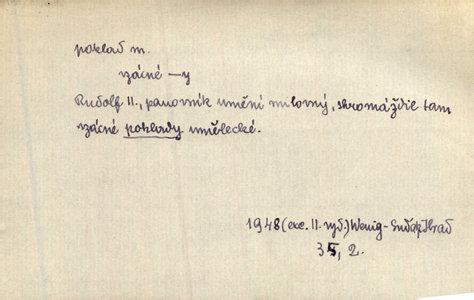 poklad m.
vzácné —y
Rudolf II., panovník umění milovný, shromáždil tam
vzácné poklady umělecké.
1948 (exc. II. vyd.) Wenig - Hrad
35, 2.